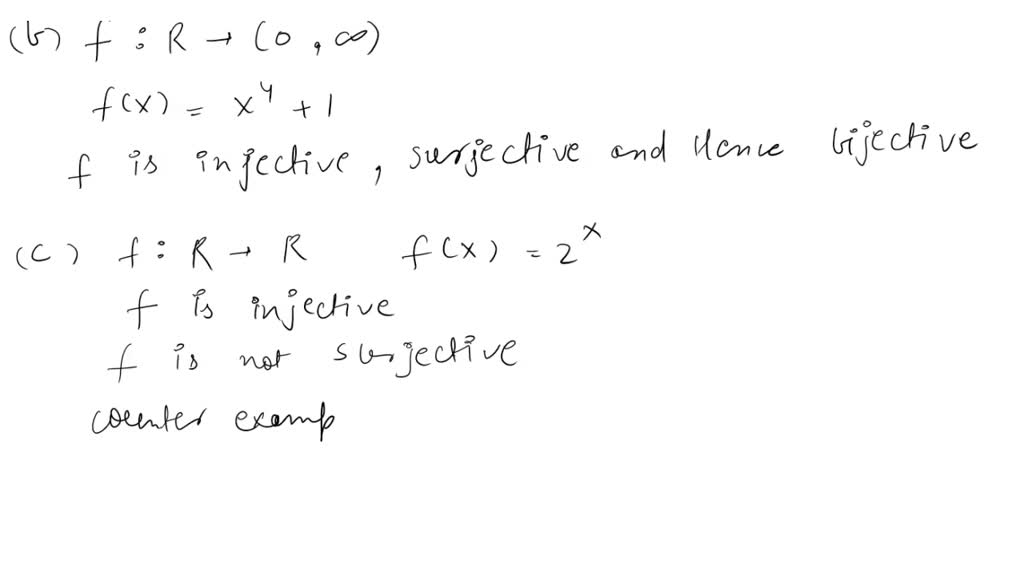 (b) f : R → (0, ∞)
f(x) = x⁴ + 1
f is injective, surjective and Hence bijective
(c) f : R → R f(x) = 2ˣ
f is injective
f is not surjective
counter examp